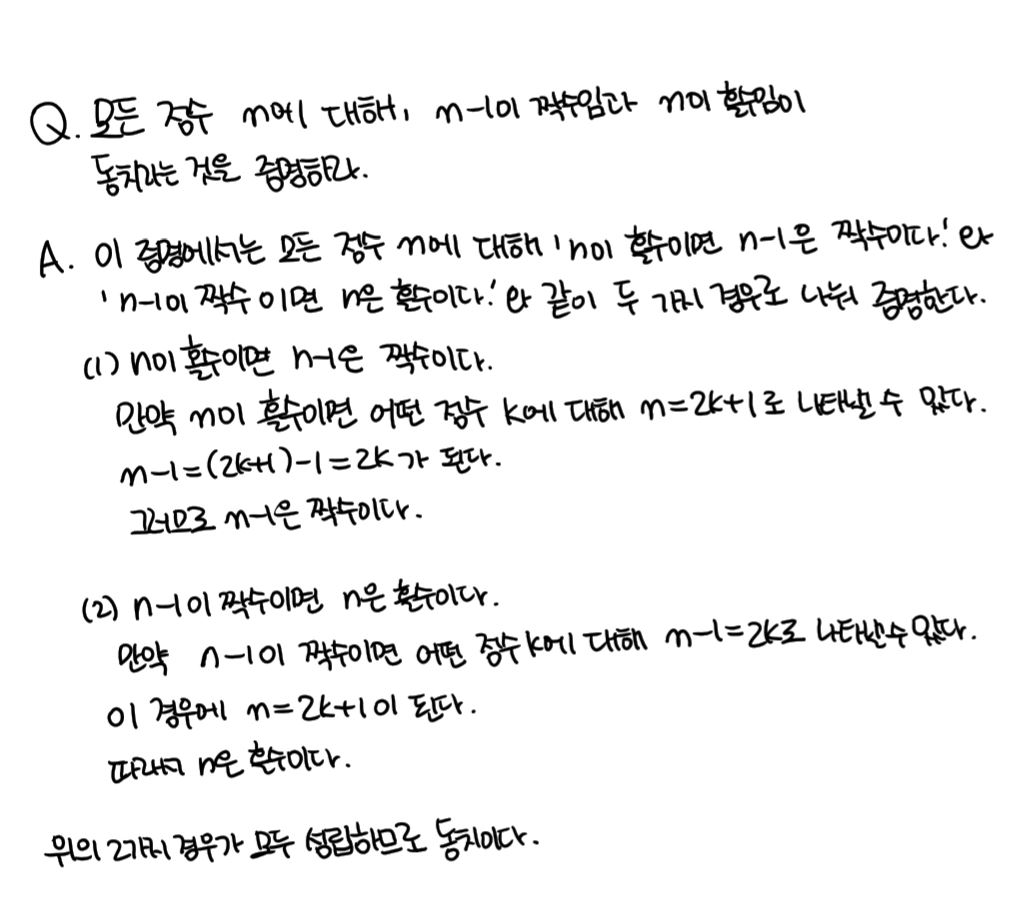 Q. 모든 정수 n에 대해, n-1이 짝수임과 n이 홀수임이
동치라는 것을 증명하라.
A. 이 증명에서는 모든 정수 n에 대해 'n이 홀수이면 n-1은 짝수이다.'와
'n-1이 짝수이면 n은 홀수이다.'와 같이 두 가지 경우로 나눠 증명한다.
(1) n이 홀수이면 n-1은 짝수이다.
만약 n이 홀수이면 어떤 정수 k에 대해 n=2k+1로 나타낼 수 있다.
n-1=(2k+1)-1=2k가 된다.
그러므로 n-1은 짝수이다.
(2) n-1이 짝수이면 n은 홀수이다.
만약 n-1이 짝수이면 어떤 정수 k에 대해 n-1=2k로 나타낼 수 있다.
이 경우에 n=2k+1이 된다.
따라서 n은 홀수이다.
위의 2가지 경우가 모두 성립하므로 동치이다.